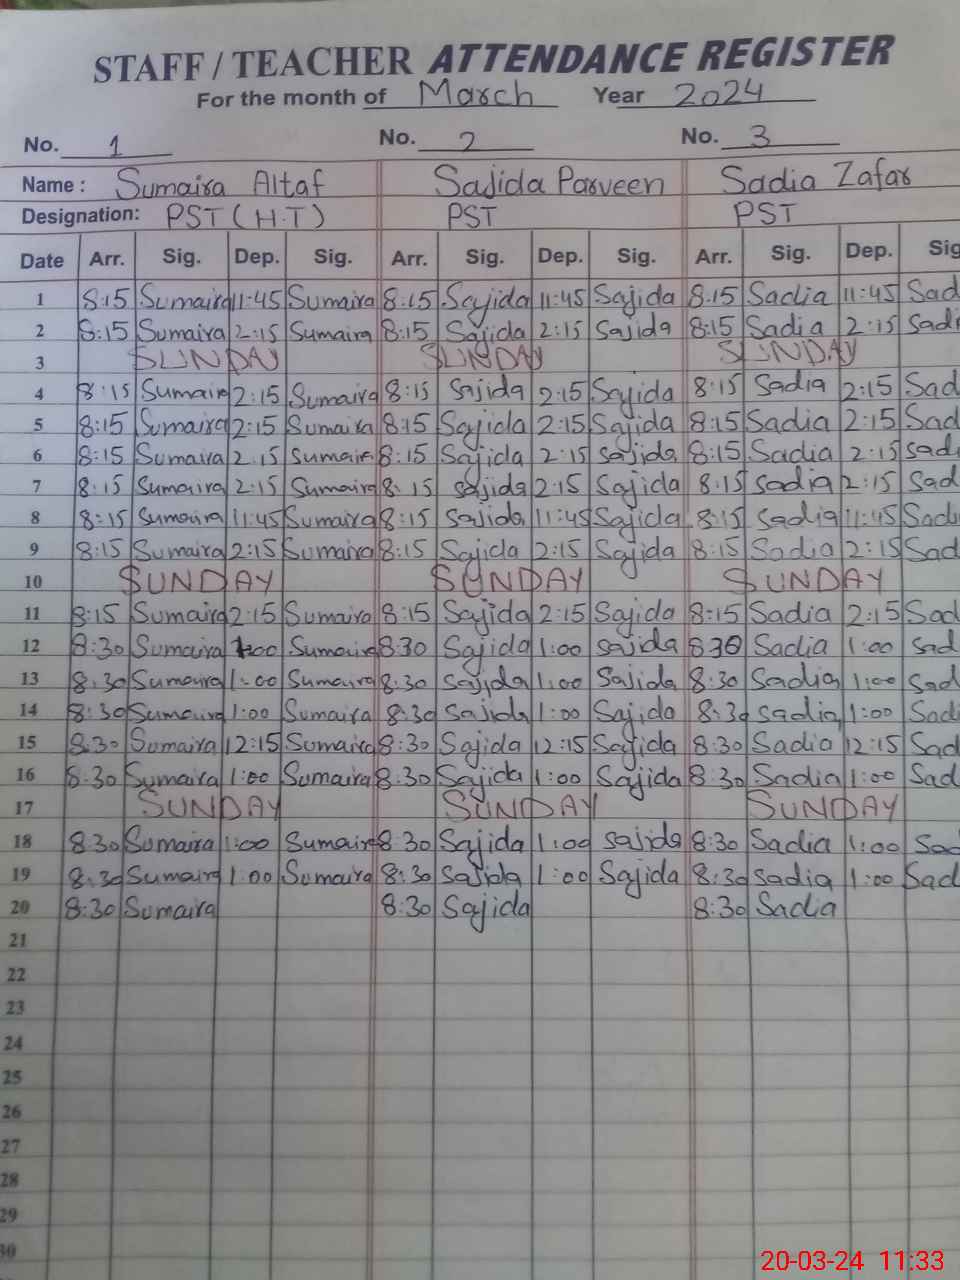 STAFF / TEACHER ATTENDANCE REGISTER
For the month of March Year 2024
No. 1 No. 2 No. 3
Name : Sumaira Altaf Sajida Parveen Sadia Zafar
Designation: PST (H.T) PST PST
Date Arr. Sig. Dep. Sig. Arr. Sig. Dep. Sig. Arr. Sig. Dep. Sig
1 8:15 Sumaira 11:45 Sumaira 8:15 Sajida 11:45 Sajida 8:15 Sadia 11:45 Sad
2 8:15 Sumaira 2:15 Sumaira 8:15 Sajida 2:15 Sajida 8:15 Sadia 2:15 Sadi
3 SUNDAY SUNDAY SUNDAY
4 8:15 Sumaira 2:15 Sumaira 8:15 Sajida 2:15 Sajida 8:15 Sadia 2:15 Sad
5 8:15 Sumaira 2:15 Sumaira 8:15 Sajida 2:15 Sajida 8:15 Sadia 2:15 Sad
6 8:15 Sumaira 2:15 Sumaira 8:15 Sajida 2:15 Sajida 8:15 Sadia 2:15 Sad
7 8:15 Sumaira 2:15 Sumaira 8:15 Sajida 2:15 Sajida 8:15 Sadia 2:15 Sad
8 8:15 Sumaira 11:45 Sumaira 8:15 Sajida 11:45 Sajida 8:15 Sadia 11:45 Sadi
9 8:15 Sumaira 2:15 Sumaira 8:15 Sajida 2:15 Sajida 8:15 Sadia 2:15 Sad
10 SUNDAY SUNDAY SUNDAY
11 8:15 Sumaira 2:15 Sumaira 8:15 Sajida 2:15 Sajida 8:15 Sadia 2:15 Sad
12 8:30 Sumaira 1:00 Sumaira 8:30 Sajida 1:00 Sajida 8:30 Sadia 1:00 Sad
13 8:30 Sumaira 1:00 Sumaira 8:30 Sajida 1:00 Sajida 8:30 Sadia 1:00 Sad
14 8:30 Sumaira 1:00 Sumaira 8:30 Sajida 1:00 Sajida 8:30 Sadia 1:00 Sadi
15 8:30 Sumaira 12:15 Sumaira 8:30 Sajida 12:15 Sajida 8:30 Sadia 12:15 Sad
16 8:30 Sumaira 1:00 Sumaira 8:30 Sajida 1:00 Sajida 8:30 Sadia 1:00 Sad
17 SUNDAY SUNDAY SUNDAY
18 8:30 Sumaira 1:00 Sumaira 8:30 Sajida 1:00 Sajida 8:30 Sadia 1:00 Sad
19 8:30 Sumaira 1:00 Sumaira 8:30 Sajida 1:00 Sajida 8:30 Sadia 1:00 Sad
20 8:30 Sumaira 8:30 Sajida 8:30 Sadia
21
22
23
24
25
26
27
28
29
30
20-03-24 11:33